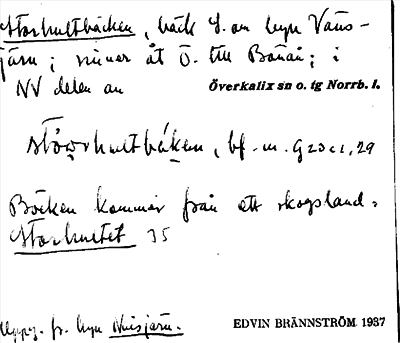 Storhultbäcken, bäck S. om byn Väns-
järn; rinner åt Ö. till Bönån; i
NV delen av
Överkalix sn o. tg Norrb. l.
bf. m.
Bäcken kommer från ett skogsland.
Storhultet 35
Uppg. fr. byn
EDVIN BRÄNNSTRÖM 1937